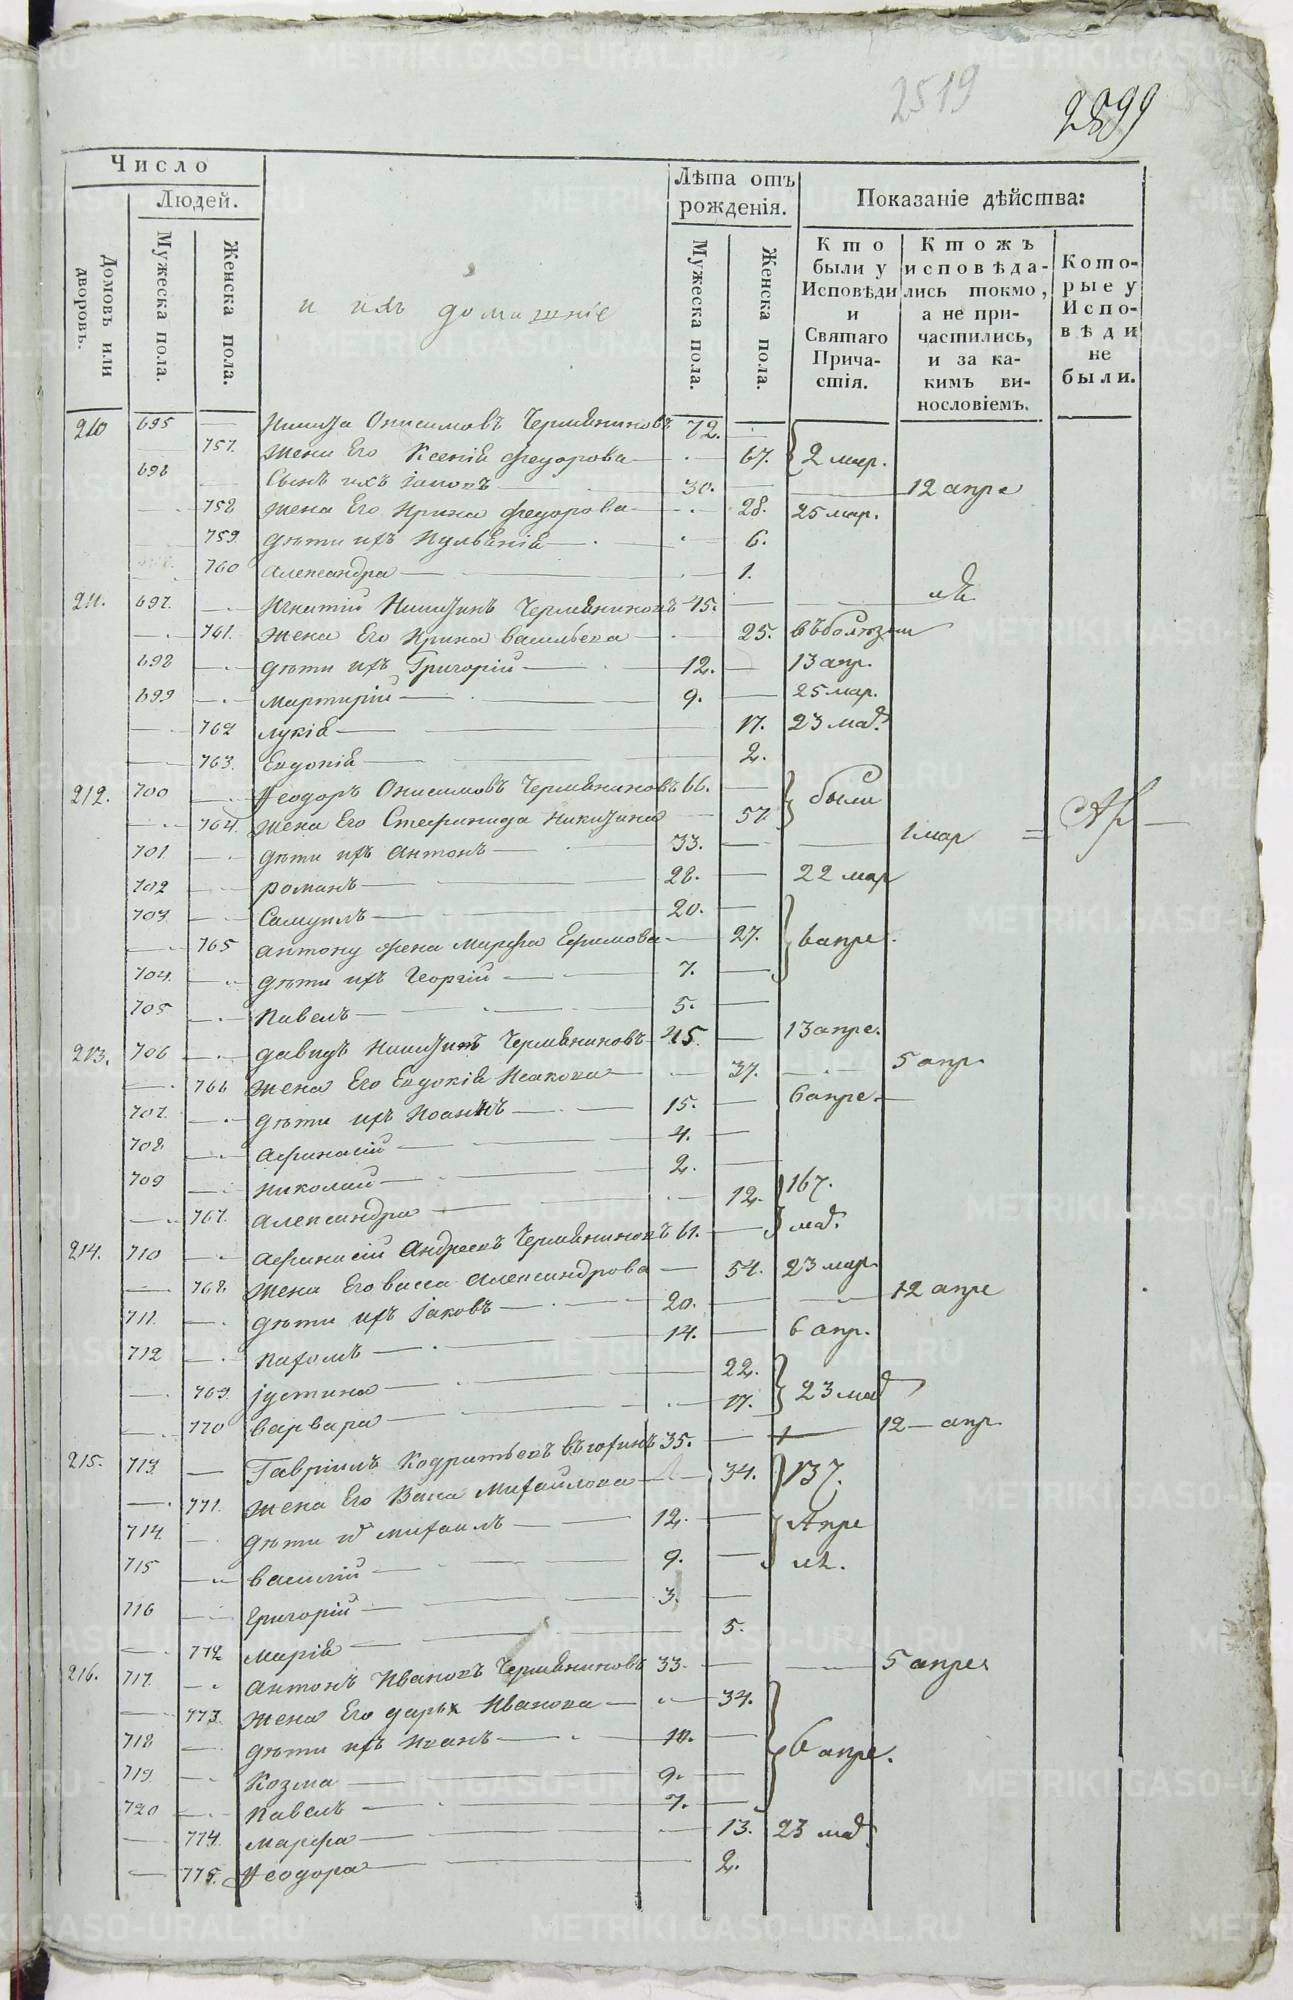 2519
2599
Число
Людей.
Домовъ или дворовъ.
Мужеска пола.
Женска пола.
и ихъ домашніе
Лѣта отъ рожденія.
Мужеска пола.
Женска пола.
Показаніе дѣйства:
Кто были у Исповѣди и Святаго Причастія.
Ктожъ исповѣдались токмо, а не причастились, и за какимъ винословіемъ.
Которые у Исповѣди не были.
210 695 — Никита Онисимовъ Чермяниновъ 72. —
757. Жена Его Ксенія Федорова — 67. 2 мар.
696 Сынъ ихъ Іаковъ 30. — 12 апре
758 Жена Его Ирина Федорова — 28. 25 мар.
759. дѣти ихъ — 6.
760 Александра — 1.
211. 697. Игнатій Никитинъ Чермяниновъ 45. —
761. Жена Его Ирина Васильева — 25.
698 дѣти ихъ Григорій — 12. — 13 апр.
699 Мартирій — 9. — 25 мар.
762 Лукія — 17. 23 мар.
763. Евдокія — 2.
212. 700 Феодоръ Онисимовъ Чермяниновъ 66. —
764. Жена Его Стефанида Никитина 57. были
701 дѣти ихъ Антонъ — 33. — 1 мар
702 Романъ — 28. — 22 мар
703. Самуилъ — 20. —
765 Антону жена Марфа Ефимова — 27. 6 апре.
704. дѣти ихъ Георгій — 7. —
705 Павелъ — 5. —
213. 706 Давидъ Никитинъ Чермяниновъ 45. — 13 апре.
766 Жена Его Евдокія Исакова — 37. 5 апр
707. дѣти ихъ Іоаннъ — 15. — 6 апре. —
708 Афанасій — 4. —
709 Николай — 2. —
767. Александра — 12.
214. 710 Афанасій Андреевъ Чермяниновъ 61. —
768. Жена Его Васса Александрова — 54. 23 мар.
711. дѣти ихъ Іаковъ — 20. — 12 апре
712 Пахомъ — 14. — 6 апр.
769. Іустина — 22.
770 Варвара — 17. 23 мар
12 — апр.
215. 713. Гавріилъ 35. —
771. Жена Его Михайлова — 34. 137.
714. дѣти Михаилъ — 12. — Апре
715 Василій — 9. —
716 Григорій — 3. —
772 Марія — 5.
216. 717. Антонъ Ивановъ Чермяниновъ 33. — 5 апре
773. Жена Его Дарья Иванова — 34.
718 дѣти ихъ Иванъ — 10. — 6 апре.
719. Козма — 9. —
720 Павелъ — 7. —
774. Марфа — 13. 23 мар.
775. Феодора — 2.
METRIKI.GASO-URAL.RU